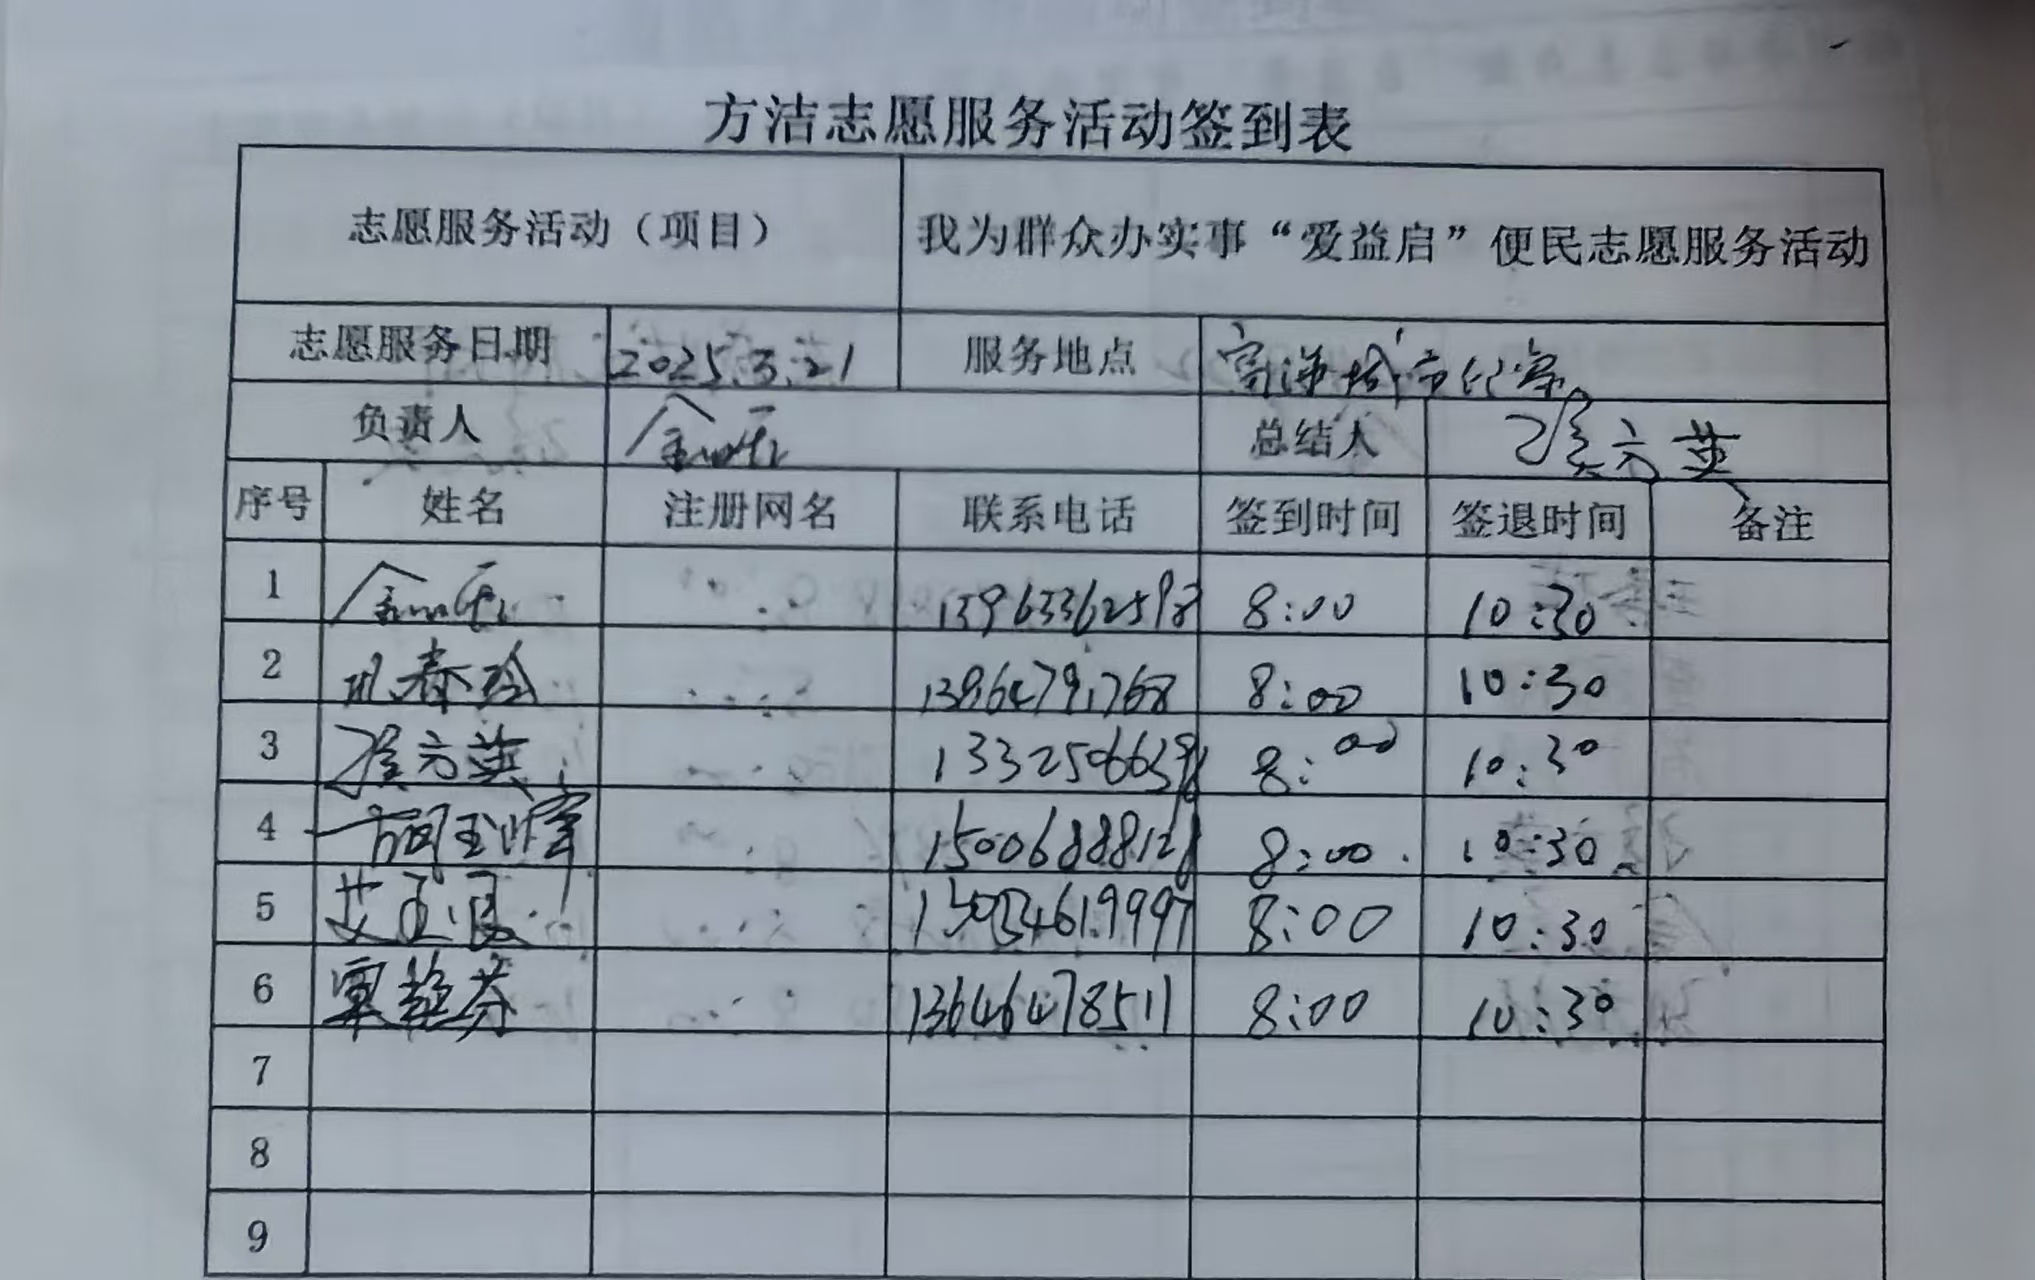 方洁志愿服务活动签到表
志愿服务活动（项目） 我为群众办实事“爱益启”便民志愿服务活动
志愿服务日期 2025.3.21 服务地点
负责人 总结人
序号 姓名 注册网名 联系电话 签到时间 签退时间 备注
1 13963362598 8:00 10:30
2 春玲 13964791768 8:00 10:30
3 方英 13325066398 8:00 10:30
4 15006888128 8:00 10:30
5 艾玉 8:00 10:30
6 13646478511 8:00 10:30
7
8
9